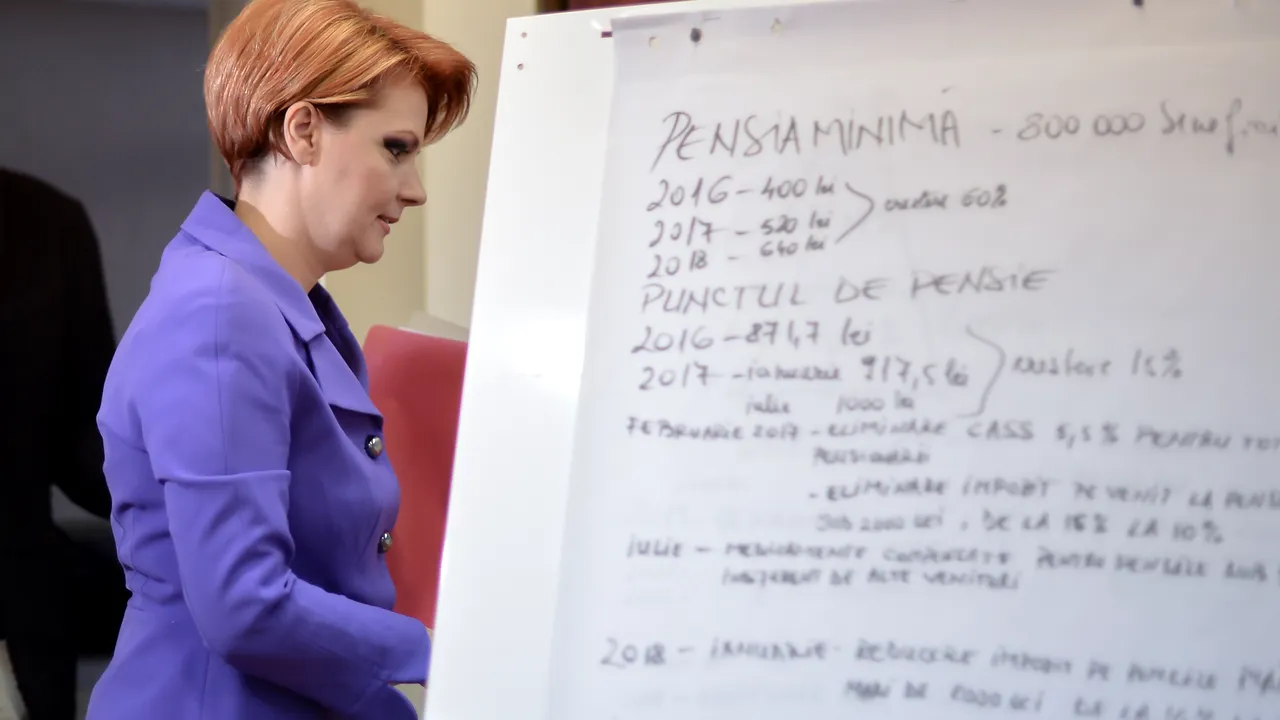 PENSIA MINIMĂ - 800 000 benefici
2016 - 400 lei
2017 - 520 lei
creștere 60%
2018 - 640 lei
PUNCTUL DE PENSIE
2016 - 871,7 lei
2017 - ianuarie 917,5 lei
creștere 15%
iulie 1000 lei
FEBRUARIE 2017 - ELIMINARE CASS 5,5% PENTRU TOȚ
PENSIONARII
- ELIMINARE IMPOZIT DE VENIT LA PENS
SUB 2000 LEI, DE LA 16% LA 10%
IULIE - MEDICAMENTE COMPENSATE PENTRU PENSIILE
INDIFERENT DE ALTE VENITURI
2018 - IANUARIE - REDUCERE IMPOZIT PE PENSIILE MAI
MARI DE 2000 LEI DE LA 16% LA